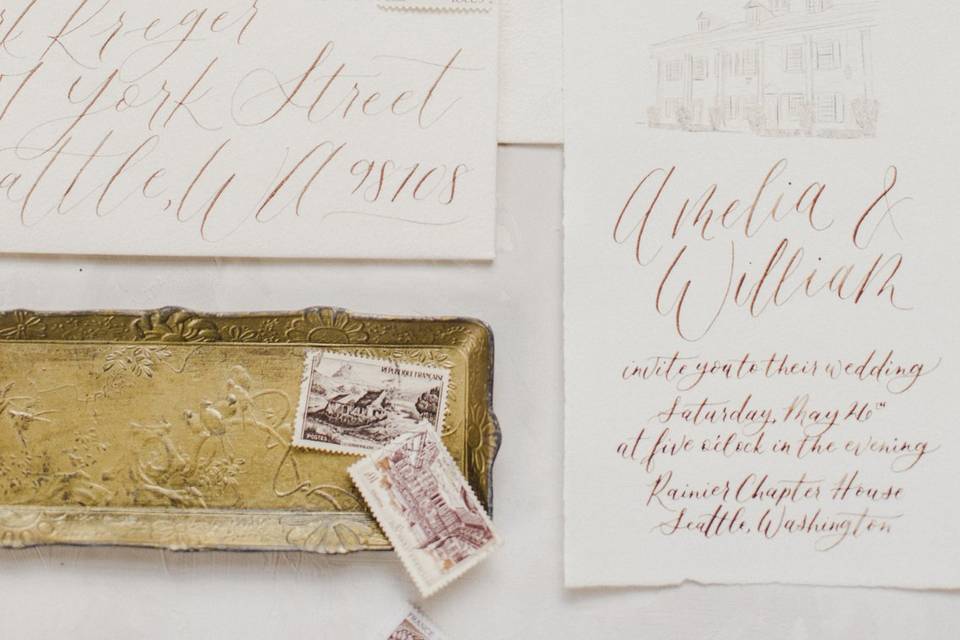 Kreger
York Street
Seattle, WA 98108
Amelia &
William
invite you to their wedding
Saturday, May 26th
at five o'clock in the evening
Rainier Chapter House
Seattle, Washington
REPUBLIQUE FRANÇAISE
POSTES
FRANCE